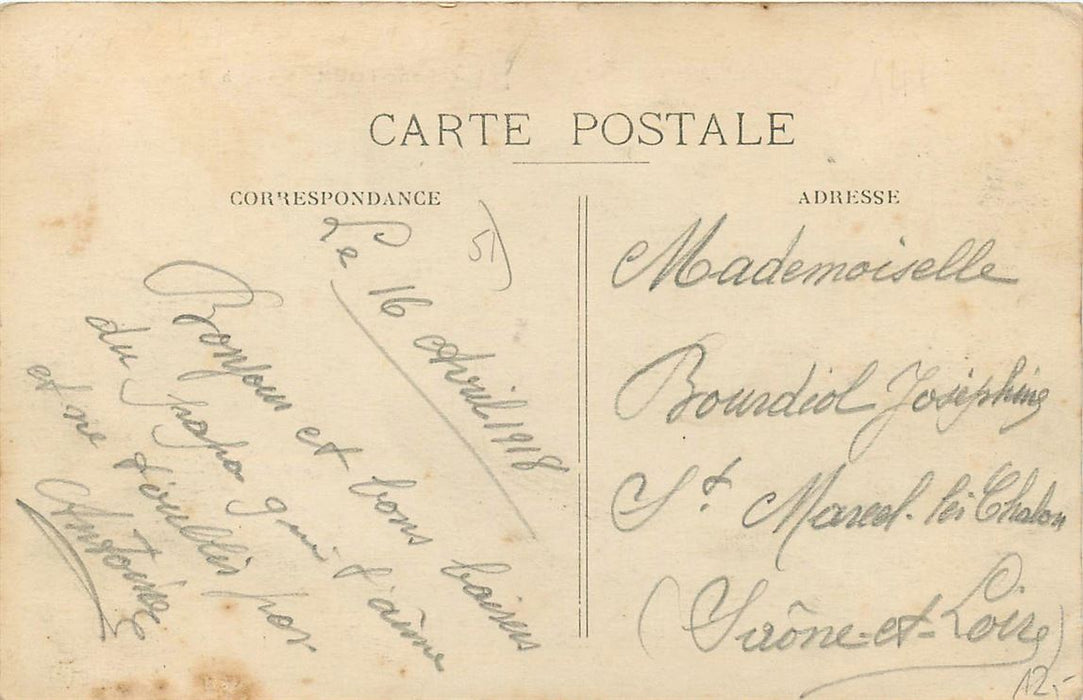 CARTE POSTALE
CORRESPONDANCE
ADRESSE
51
Le 16 Avril 1918
Bonjour et bons baisers
du papa qui t'aime
et ne t'oublis pas
Antoine
Mademoiselle
Bourdiol Joséphine
St. Marcel-lès Chalon
(Saône-et-Loire)
12,-